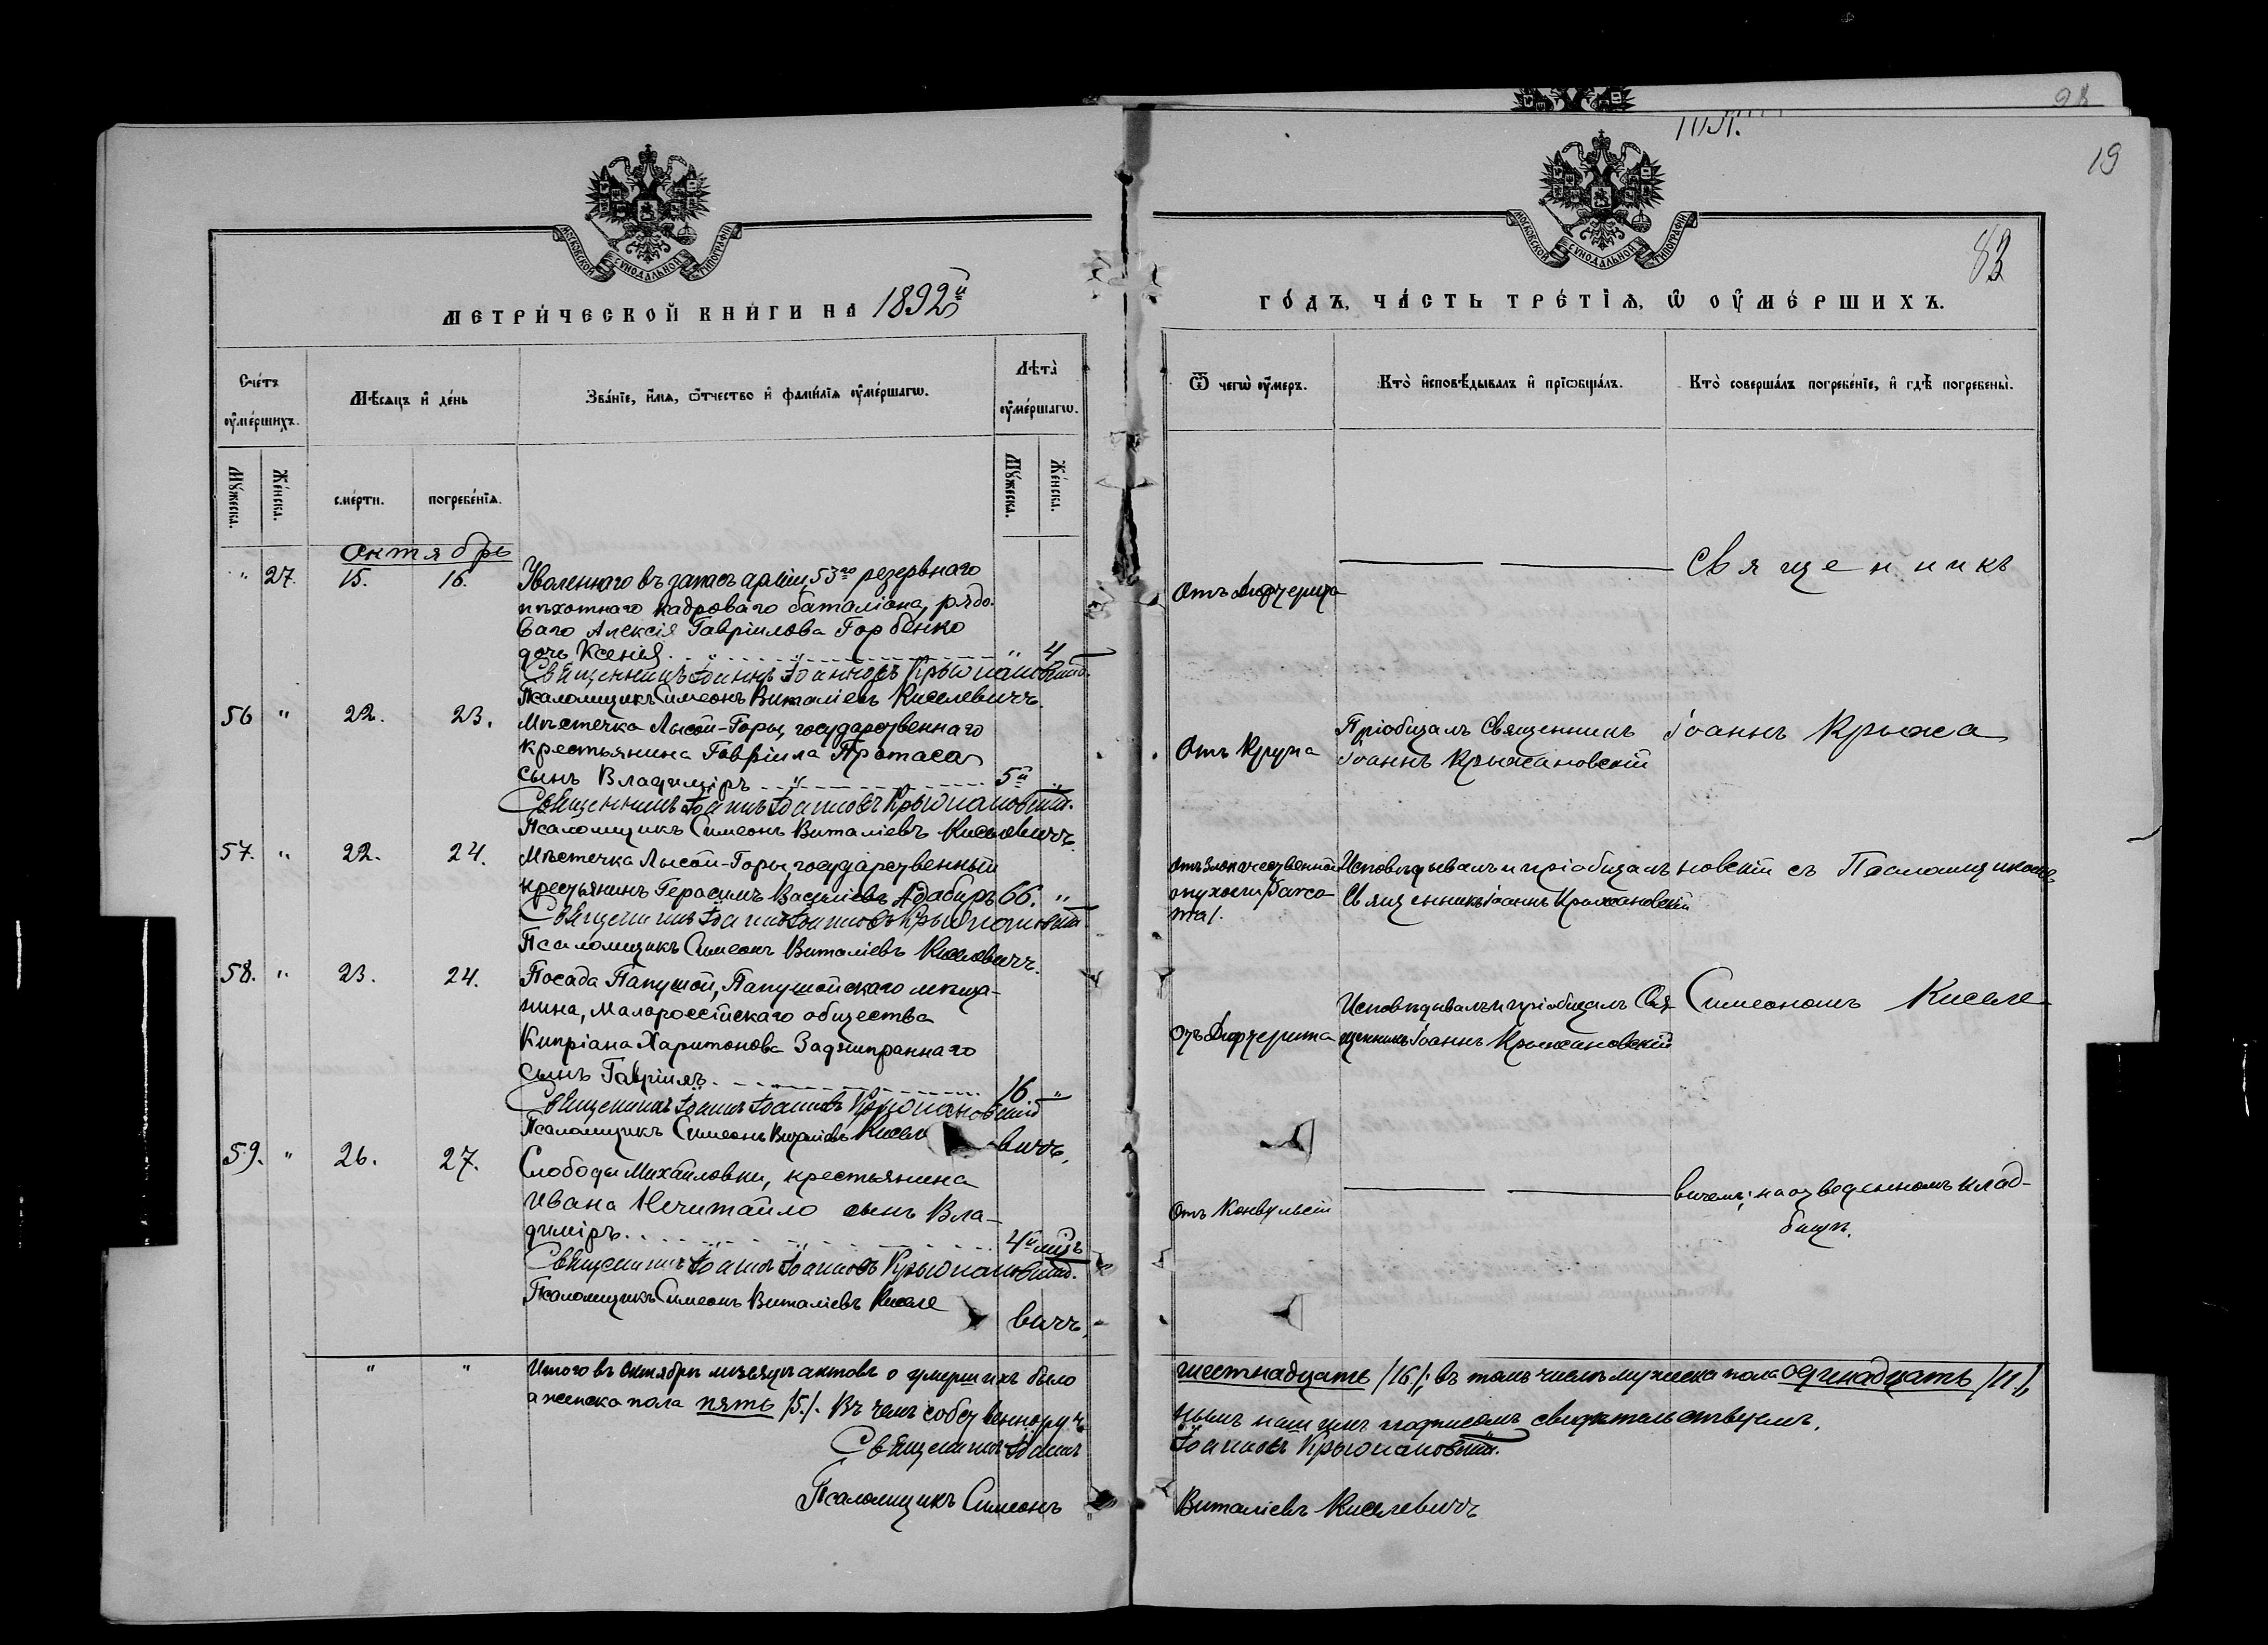 98
19
83
МОСКОВСКОЙ СѴНОДАЛЬНОЙ ТИПОГРАФІИ
МОСКОВСКОЙ СѴНОДАЛЬНОЙ ТИПОГРАФІИ
МЕТРИ́ЧЕСКОЙ КНИ́ГИ НА 1892й
ГО́ДЪ, ЧА́СТЬ ТРЕ́ТІѦ, Ѡ ОУ҆МЕ́РШИХЪ.
Сче́тъ оу҆ме́ршихъ.
Мѣ́сѧцъ и҆ де́нь
Зва́нїе, и҆́мѧ, ѻ҆́тчество и҆ фами́лїѧ оу҆ме́ршагѡ.
Лѣ́та оу҆ме́ршагѡ.
Ѿ чегѡ̀ оу҆́меръ.
Кто̀ и҆сповѣ́дывалъ и҆ прїѡбща́лъ.
Кто̀ соверша́лъ погребе́нїе, и҆ гдѣ̀ погребены̀.
Мꙋ́жеска.
Же́нска.
сме́рти.
погребе́нїѧ.
Мꙋ́жеска.
Же́нска.
Октябрь
" 27. 15. 16. Уволеннаго въ запасъ арміи 53го резервнаго
пѣхотнаго кадроваго баталіона, рядо-
ваго Алексія Гавріилова Горбенко
дочь Ксенія " " 4
Священникъ Іоаннъ Іоанновъ Крыжановскій.
Псаломщикъ Симеонъ Виталіевъ Киселевичъ.
Отъ дифтерита
Священникъ
56 " 22. 23. Мѣстечка Лысой-Горы, государственнаго
крестьянина Гавріила Протаса
сынъ Владиміръ " 5й "
Священникъ Іоаннъ Іоанновъ Крыжановскій.
Псаломщикъ Симеонъ Виталіевъ Киселевичъ.
Отъ Крупа
Пріобщалъ Священникъ
Іоаннъ Крыжановскій
Іоаннъ Крыжа
57. " 22. 24. Мѣстечка Лысой-Горы, государственный
крестьянинъ Герасимъ Василіевъ 66. "
Священникъ Іоаннъ Іоанновъ Крыжановскій
Псаломщикъ Симеонъ Виталіевъ Киселевичъ.
Отъ злокачественной
опухоли
Исповѣдывалъ и пріобщалъ
Священникъ Іоаннъ Крыжановскій
новскій съ Псаломщикомъ
58. " 23. 24. Посада Папушой, Папушойскаго мѣща-
нина, Малороссійскаго общества
Кипріана Харитонова Заднипраннаго
сынъ Гавріилъ 16 "
Священникъ Іоаннъ Іоанновъ Крыжановскій
Псаломщикъ Симеонъ Виталіевъ Киселе вичъ,
Отъ Дифтерита
Исповѣдывалъ и пріобщалъ Свя
щенникъ Іоаннъ Крыжановскій
Симеономъ Киселе
59. " 26. 27. Слободы Михайловки, крестьянина
Ивана Нечитайло сынъ Вла-
диміръ 4й мцъ
Священникъ Іоаннъ Іоанновъ Крыжановскій.
Псаломщикъ Симеонъ Виталіевъ Киселе вичъ,
Отъ Конвульсій
вичемъ; на отведенномъ клад-
бищѣ.
" " Итого въ Октябрѣ мѣсяцѣ актовъ о умершихъ было шестнадцать /16/; въ томъ числѣ мужеска пола одинадцать /11/,
а женска пола пять /5/. Въ чемъ собственноруч нымъ нашимъ подписомъ свидѣтельствуемъ.
Священникъ Іоаннъ Іоанновъ Крыжановскій.
Псаломщикъ Симеонъ Виталіевъ Киселевичъ